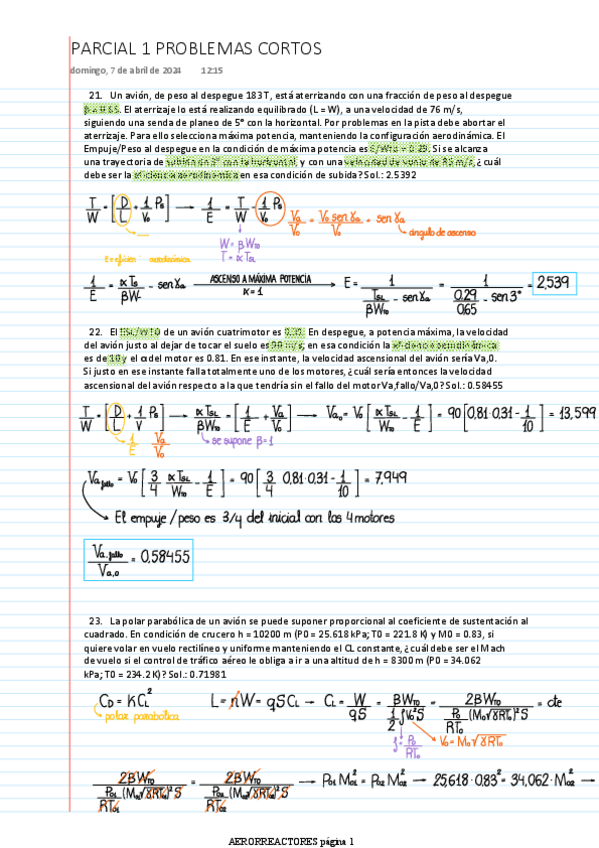 PARCIAL 1 PROBLEMAS CORTOS
domingo, 7 de abril de 2024 12:15
21. Un avión, de peso al despegue 183T, está aterrizando con una fracción de peso al despegue
β = 0.65. El aterrizaje lo está realizando equilibrado (L = W), a una velocidad de 76 m/s,
siguiendo una senda de planeo de 5° con la horizontal. Por problemas en la pista debe abortar el
aterrizaje. Para ello selecciona máxima potencia, manteniendo la configuración aerodinámica. El
Empuje/Peso al despegue en la condición de máxima potencia es = 0.29. Si se alcanza
una trayectoria de subida de 3° con la horizontal, y con una velocidad de vuelo de m/s, ¿cuál
debe ser la eficiencia aerodinámica en esa condición de subida? Sol.: 2.5392
T/W = [D/L + 1/V₀ Ps] → 1/E = T/W - 1/V₀ Ps
Va/V₀ = V₀ sen γa/V₀ = sen γa
ángulo de ascenso
W = βWTO
T = αTSL
E = eficien aerodinámica
1/E = αTS/βW - sen γa → ASCENSO A MÁXIMA POTENCIA α = 1 → E = 1/(TSL/βWTO - sen γa) = 1/(0.29/0.65 - sen 3°) = 2,539
22. El TSL/WTO de un avión cuatrimotor es 0.31. En despegue, a potencia máxima, la velocidad
del avión justo al dejar de tocar el suelo es 90 m/s; en esa condición la eficiencia aerodinámica
es de 10 y el α del motor es 0.81. En ese instante, la velocidad ascensional del avión sería Va,0.
Si justo en ese instante falla totalmente uno de los motores, ¿cuál sería entonces la velocidad
ascensional del avión respecto a la que tendría sin el fallo del motor Va,fallo/Va,0? Sol.: 0.58455
T/W = [D/L + 1/V Ps] → αTSL/βWTO = [1/E + Va/V₀] → Va₀ = V₀ [αTSL/WTO - 1/E] = 90 [0,81·0,31 - 1/10] = 13,599
1/E Va/V₀ se supone β = 1
Va,fallo = V₀ [3/4 αTSL/WTO - 1/E] = 90 [3/4 0,81·0,31 - 1/10] = 7,949
El empuje/peso es 3/4 del inicial con los 4 motores
Va,fallo/Va,0 = 0,58455
23. La polar parabólica de un avión se puede suponer proporcional al coeficiente de sustentación al
cuadrado. En condición de crucero h = 10200 m (P0 = 25.618 kPa; T0 = 221.8 K) y M0 = 0.83, si
quiere volar en vuelo rectilíneo y uniforme manteniendo el CL constante, ¿cuál debe ser el Mach
de vuelo si el control de tráfico aéreo le obliga a ir a una altitud de h = 8300 m (P0 = 34.062
kPa; T0 = 234.2 K)? Sol.: 0.71981
CD = KCL² L = nW = qSCL → CL = W/qS = βWTO/(1/2 ρV₀²S) = 2βWTO/(P₀/RT₀ (M₀√γRT₀)² S) = cte
polar parabólica
ρ = P₀/RT₀ V₀ = M₀√γRT₀
2βWTO/(P₀₁/RT₀₁ (M₀₁√γRT₀₁)² S) = 2βWTO/(P₀₂/RT₀₂ (M₀₂√γRT₀₂)² S) → P₀₁ M₀₁² = P₀₂ M₀₂² → 25,618·0.83² = 34,062·M₀₂ →
AERORREACTORES página 1